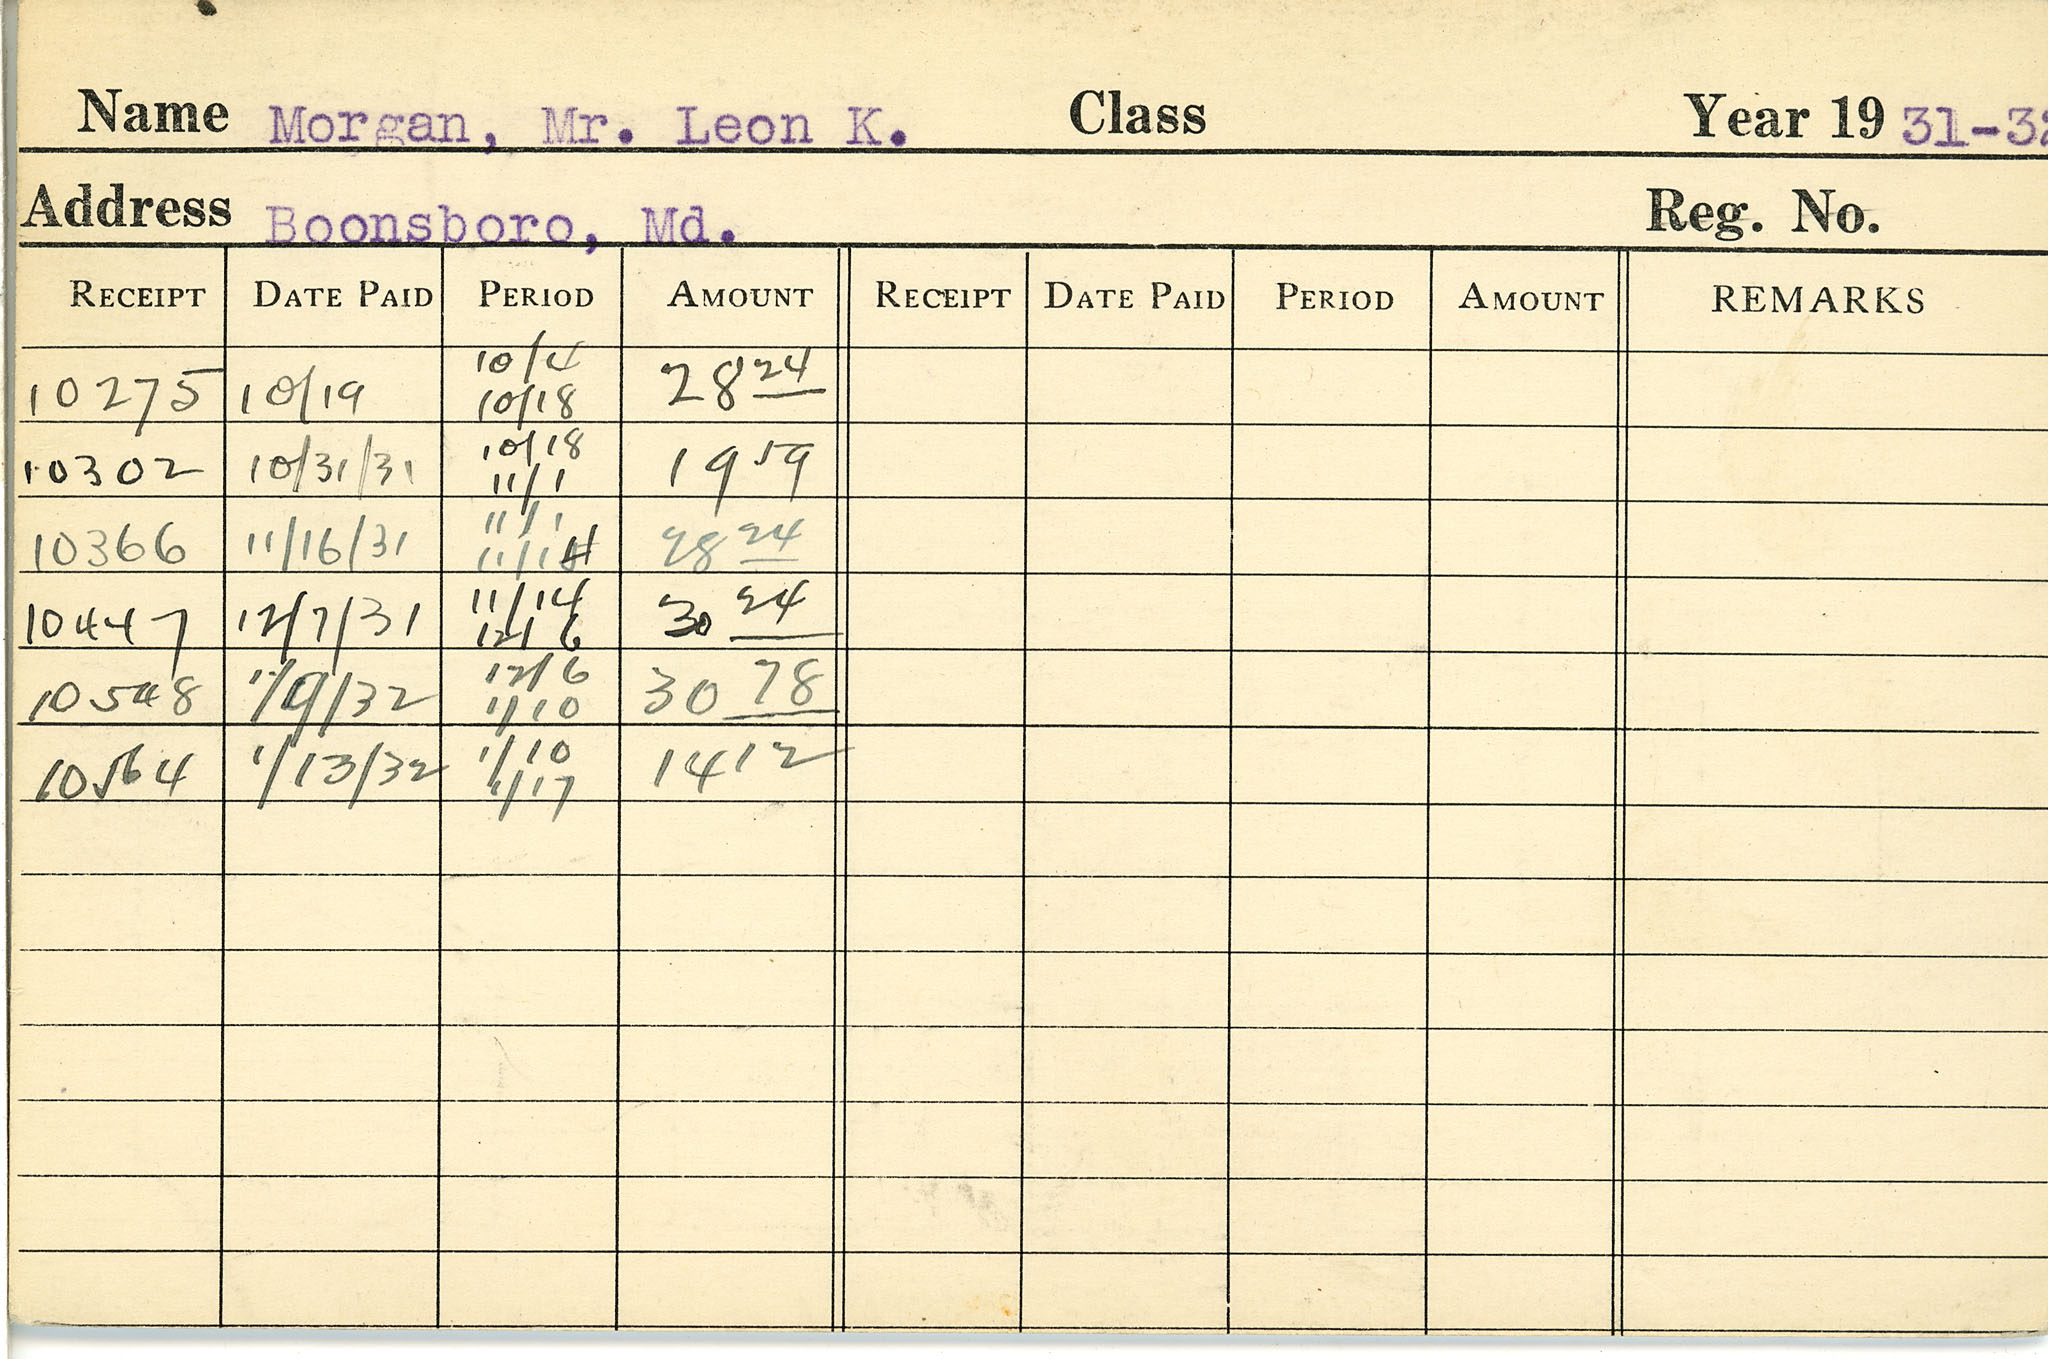 Name Morgan, Mr. Leon K. Class Year 19 31-32
Address Boonsboro, Md. Reg. No.
RECEIPT DATE PAID PERIOD AMOUNT RECEIPT DATE PAID PERIOD AMOUNT REMARKS
10/4
10275 10/19 10/18 28 24
10/18
10302 10/31/31 11/1 19 59
11/1
10366 11/16/31 11/14 28 24
11/14
10447 12/7/31 12/6 30 24
12/6
10548 1/9/32 1/10 30 78
1/10
10564 1/13/32 1/17 14 12